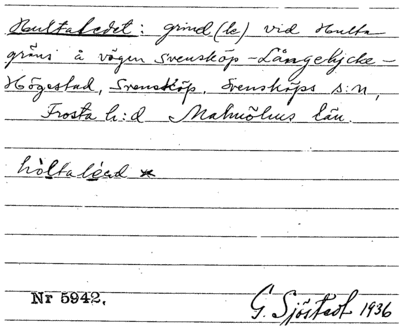 Hultaledet: grind(ł) vid Hulta
gräns å vägen Svensköp-Långelycke-
Högestad, Svensköp, Svensköps s:n,
Frosta h:d Malmöhus län.
hòltalėad *
Nr 5942.
G. Sjöstedt 1936